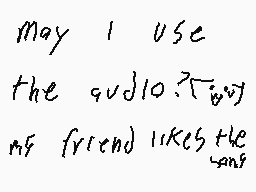 May I use
the audio?
my friend likes the
song